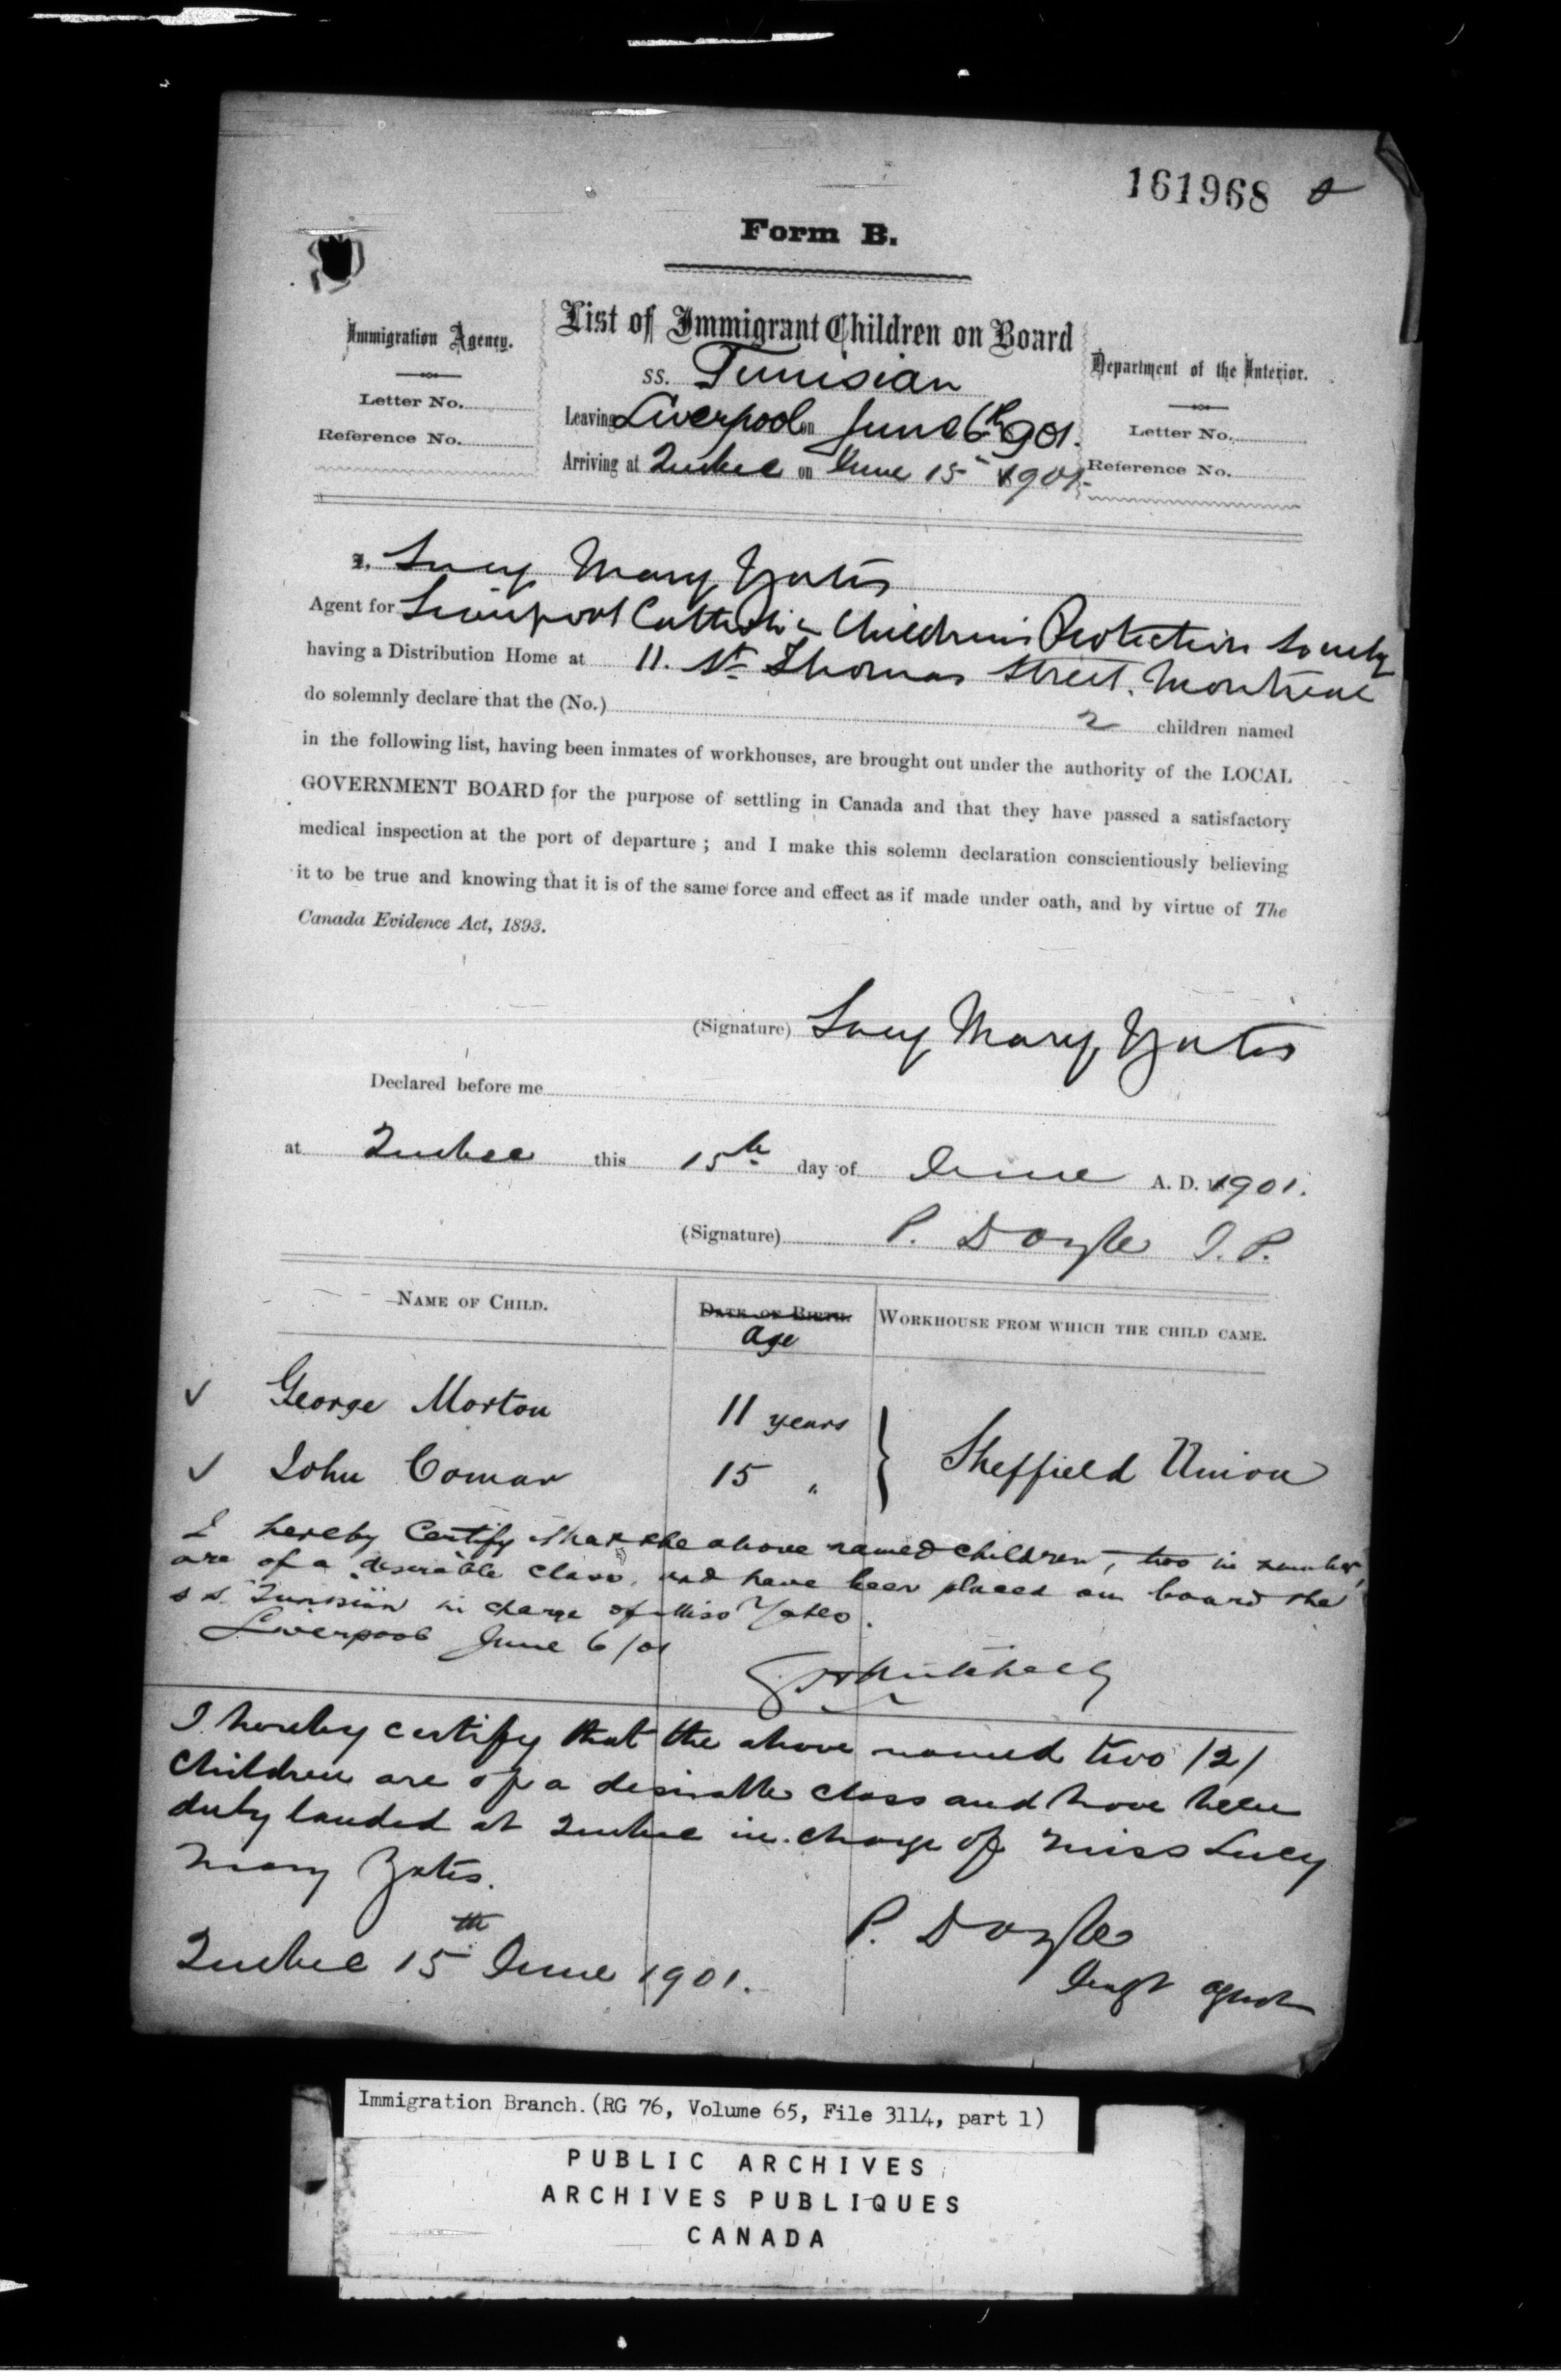 161968
Form B.
Immigration Agency.
Letter No.
Reference No.
List of Immigrant Children on Board
SS. Tunisian
Leaving Liverpool on June 6th 1901.
Arriving at Quebec on June 15" 1901.
Department of the Interior.
Letter No.
Reference No.
I, Lucy Mary Yates
Agent for Liverpool Catholic Children's Protection Society
having a Distribution Home at 11. St Thomas Street, Montreal
do solemnly declare that the (No.) 2 children named
in the following list, having been inmates of workhouses, are brought out under the authority of the LOCAL
GOVERNMENT BOARD for the purpose of settling in Canada and that they have passed a satisfactory
medical inspection at the port of departure ; and I make this solemn declaration conscientiously believing
it to be true and knowing that it is of the same force and effect as if made under oath, and by virtue of The
Canada Evidence Act, 1893.
(Signature) Lucy Mary Yates
Declared before me
at Quebec this 15th day of June A. D. 1901.
(Signature) P. Doyle J. P.
NAME OF CHILD. DATE OF BIRTH. WORKHOUSE FROM WHICH THE CHILD CAME.
age
✓ George Morton 11 years } Sheffield Union
✓ John Comar 15 "
I hereby Certify that the above named children, two in number,
are of a desirable class, and have been placed on board the
s s. Tunisian in charge of Miss Yates.
Liverpool June 6/01
Mitchell
I hereby certify that the above named two /2/
children are of a desirable class and have been
duly landed at Quebec in charge of Miss Lucy
Mary Yates.
P. Doyle
Quebec 15th June 1901.
Imgt Agent
Immigration Branch.(RG 76, Volume 65, File 3114, part 1)
PUBLIC ARCHIVES
ARCHIVES PUBLIQUES
CANADA